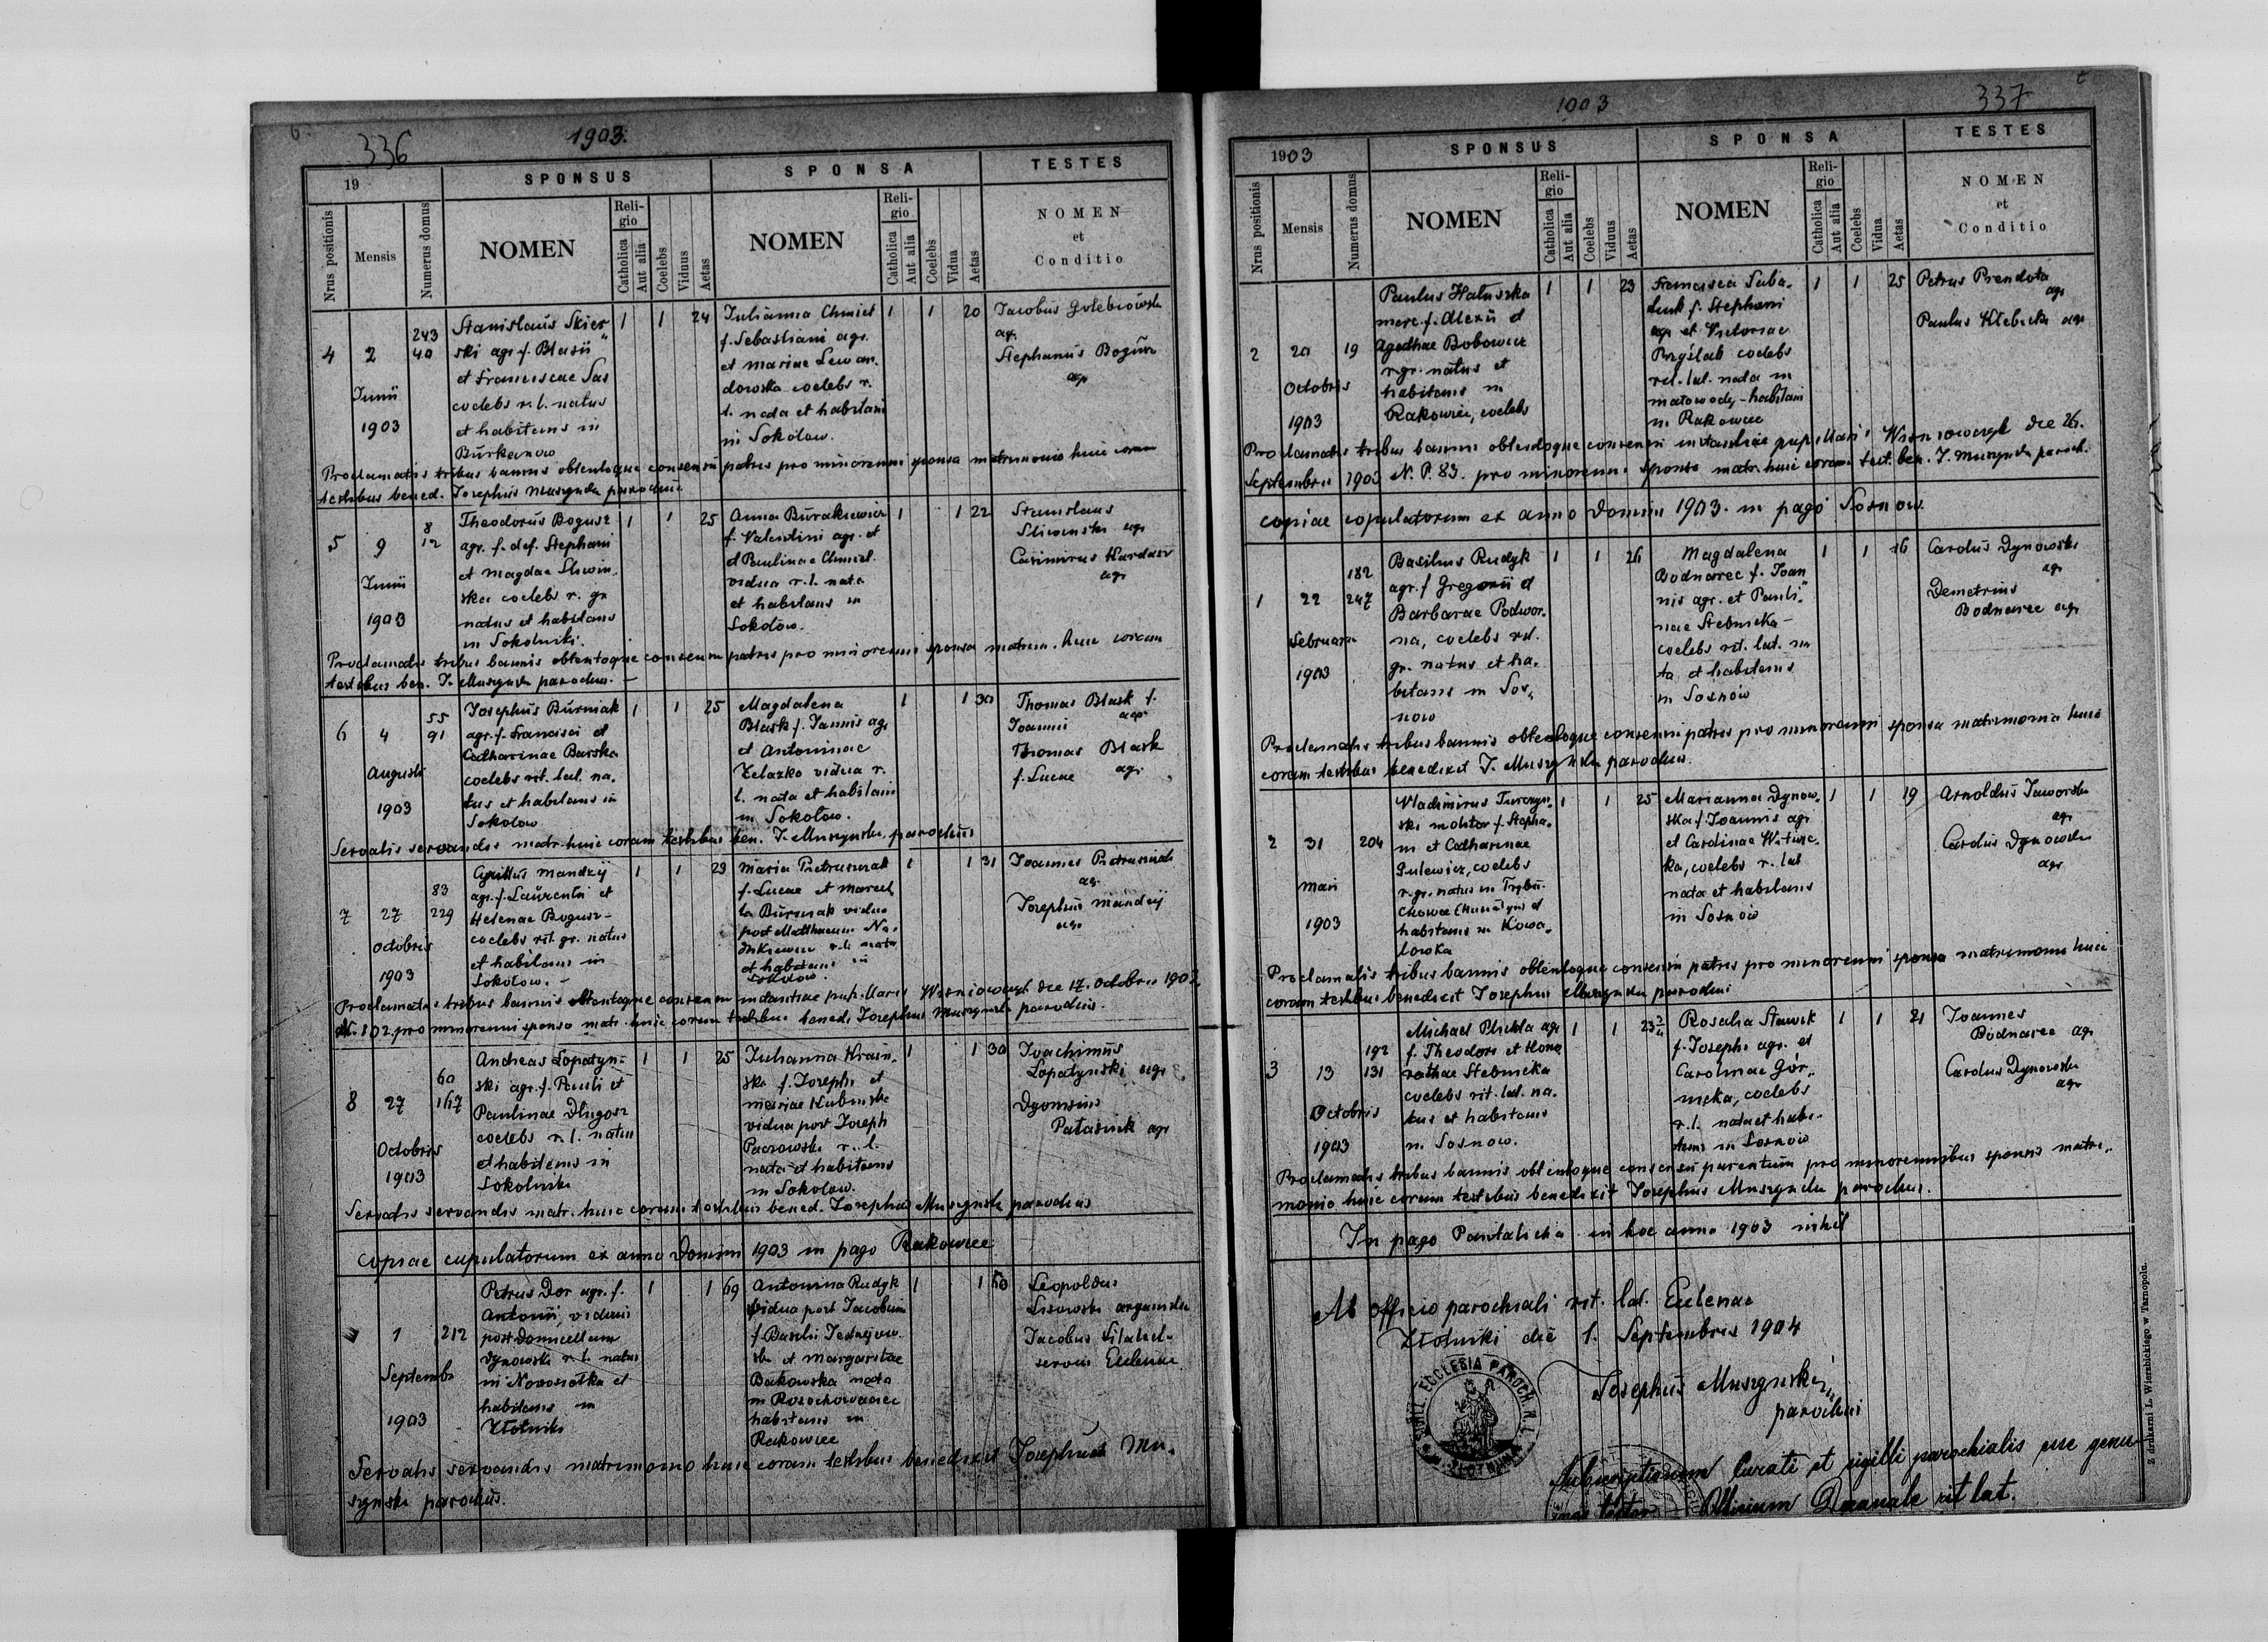 336
1903.
19
SPONSUS
SPONSA
TESTES
Nrus positionis
Mensis
Numerus domus
NOMEN
Religio
Catholica
Aut alia
Coelebs
Viduus
Aetas
NOMEN
Religio
Catholica
Aut alia
Coelebs
Vidua
Aetas
NOMEN
et
Conditio
4
2
Junii
1903
243
40
Stanislaus Skier
ski agr. f. Blasii
et Franciscae Sas
coelebs r. l. natus
et habitans in
Burkanow
1
1
24
Julianna Chmiel
f. Sebastiani agr.
et Mariae Lewan.
dowska coelebs r.
l. nata et habitans
in Sokołow.
1
1
20
Jacobus Gołebiowski
agr.
Stephanus Bogusz
agr
Proclamatis tribus bannis obtentoque consensu patris pro minorenni sponsa matrimonio huic coram
testibus bened. Josephus Muszynski parochus
5
9
Junii
1903
8
12
Theodorus Bogusz
agr. f. def. Stephani
et Magdae Sliwin.
ska coelebs r. gr
natus et habitans
in Sokolniki.
1
1
25
Anna Burakiewicz
f. Valentini agr. et
et Paulinae Chmiel.
vidua r. l. nata
et habitans in
Sokołow.
1
1
22
Stanislaus
Sliwinski agr
Casimirus Kardasz
agr
Proclamatis tribus bannis obtentoque consensu patris pro minorenni sponsa matrim. huic coram
testibus ben. J. Muszynski parochus. –
6
4
Augusti
1903
55
91
Josephus Burniak
agr. f. Francisci et
Catharinae Barska
coelebs rit. lat. na.
tus et habitans in
Sokolow
1
1
25
Magdalena
Blask f. Joannis agr
et Antoninae
Zelazko vidua r.
l. nata et habitans
in Sokołow.
1
1
30
Thomas Blask f.
Joannis agr
Thomas Blask
f. Lucae agr.
Servatis servandis matr. huic coram testibus ben. J. Muszynski parochus
7
27
Octobris
1903
83
229
Cyrillus Mandzij
agr. f. Laurentii et
Helenae Bogusz –
coelebs rit. gr. natus
et habitans in
Sokolow. –
1
1
23
Maria Pietruszniak
f. Lucae et
Burniak vidua
post Matthaeum
r. l. nata
et habitans in
Sokołow.
1
1
31
Joannes
agr.
Josephus Mandzij
agr
Proclamatis tribus bannis obtentoque consensu instantiae pupillaris Wisniowczyk die 17. Octobris 1903
N. 102. pro minorenni sponso matr. huic coram testibus bened. Josephus Muszynski parochus.
8
27
Octobris
1903
60
167
Andreas Lopatyn-
ski agr. f. Pauli et
Paulinae Długosz
coelebs r. l. natus
et habitans in
Sokolniki
1
1
25
Julianna Krasin.
ska f. Josephi et
Mariae Kubinska
vidua post Joseph
r. l.
nata et habitans
in Sokolow.
1
1
30
Joachimus
Lopatynski agr
Dyonisius
Patasiuk agr
Servatis servandis matr. huic coram testibus bened. Josephus Muszynski parochus
Copiae cupulatorum ex anno Domini 1903 in pago Rakowiec
1
1
Septembr
1903
212
Petrus Dor agr. f.
Antonii, viduus
post Domicellam
Dynowski r. l. natus
in Nowosiołka et
habitans in
Złotniki
1
1
69
Antonina Rudyk
vidua post Jacobum
f. Basilii Jednejow.
ska et Margaritae
Bakowska nata
in Rosochowaciec
habitans in
Rakowiec
1
1
60
Leopoldus
Lisowski organista
Jacobus
servus Ecclesiae
Servatis servandis matrimonio huic coram testibus benedixit Josephus Mu.
szynski parochus.
337
1903
1903
SPONSUS
SPONSA
TESTES
Nrus positionis
Mensis
Numerus domus
NOMEN
Religio
Catholica
Aut alia
Coelebs
Viduus
Aetas
NOMEN
Religio
Catholica
Aut alia
Coelebs
Vidua
Aetas
NOMEN
et
Conditio
2
20
Octobris
1903
19
Paulus Hałuszka
merc. f. Alexii et
Agathae Bobowicz
r. gr. natus et
habitans in
Rakowiec, coelebs
1
1
23
Francisca Suba.
f. Stephani
agr et Victoriae
Przyslab coelebs
rit. lat. nata in
Małowody – habitans
in Rakowiec
1
1
25
Petrus Prendota
agr
Paulus Klebecki agr
Proclamatis tribus bannis obtentoque consensu instantiae pupillaris Wisniowczyk die 26.
Septembris 1903 N. P. 83. pro minorenni sponso matr. huic coram test. ben. J. Muszynski paroch.
Copiae copulatorum ex anno Domini 1903. in pago Sosnow.
1
22
Februarii
1903
182
247
Basilius Rudyk
agr. f Gregorii et
Barbarae Podwor.
na, coelebs rit.
gr. natus et ha.
bitans in Sos.
now
1
1
26
Magdalena
Bodnarec f. Joan
nis agr. et Pauli
nae Stebnicka –
coelebs rit. lat. na
ta et habitans
in Sosnow
1
1
16
Carolus Dynowski
agr
Demetrius
Bodnarec agr
Proclamatis tribus bannis obtentoque consensu patris pro minorenni sponsa matrimonio huic
coram testibus benedixit J. Muszynski parochus.
2
31
Maii
1903
204
Vladimirus Turczyn.
ski molitor f. Stepha.
ni et Catharinae
Gulewicz, coelebs
r. gr. natus in Trybu.
chowce et
habitans in Kowa.
lowka
1
1
25
Marianna Dynow.
ska f. Joannis agr
et Carolinae
ka, coelebs r. lat
nata et habitans
in Sosnow
1
1
19
Arnoldus Jaworski
agr
Carolus Dynowski
agr
Proclamatis tribus bannis obtentoque consensu patris pro minorenni sponsa matrimonio huic
coram testibus benedixit Josephus Muszynski parochus
3
13
Octobris
1903
192
131
Michael Plichta agr
f. Theodori et Hono
rathae Stebnicka
coelebs rit. lat. na.
tus et habitans
in Sosnow.
1
1
23
Rosalia Sławik
f. Josephi agr. et
Carolinae Gór.
nicka, coelebs
r. l. nata et habi.
tans in Sosnow
1
1
21
Joannes
Bodnarec agr
Carolus Dynowski
agr
Proclamatis tribus bannis obtentoque consensu parentum pro minorennibus sponsis matri.
monio huic coram testibus benedixit Josephus Muszynski parochus.
In pago Pantalicha in hoc anno 1903 nihil
Ab officio parochiali rit. lat. Ecclesiae
Złotniki die 1. Septembris 1904
Josephus Muszynski
parochus
Subscriptionem Curati et sigilli parochialis esse genui
Officium Decanale rit lat.
Z drukarni L. Wierzbickiego w Tarnopolu.